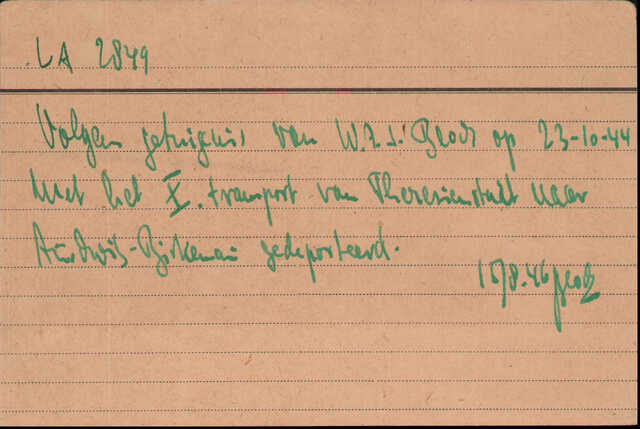 LA 2849
Volgens getuigenis van W.Z.S. Bloch op 23-10-44
Met het X. transport van Theresienstadt naar
Auschwitz-Birkenau gedeporteerd.
15/8-46